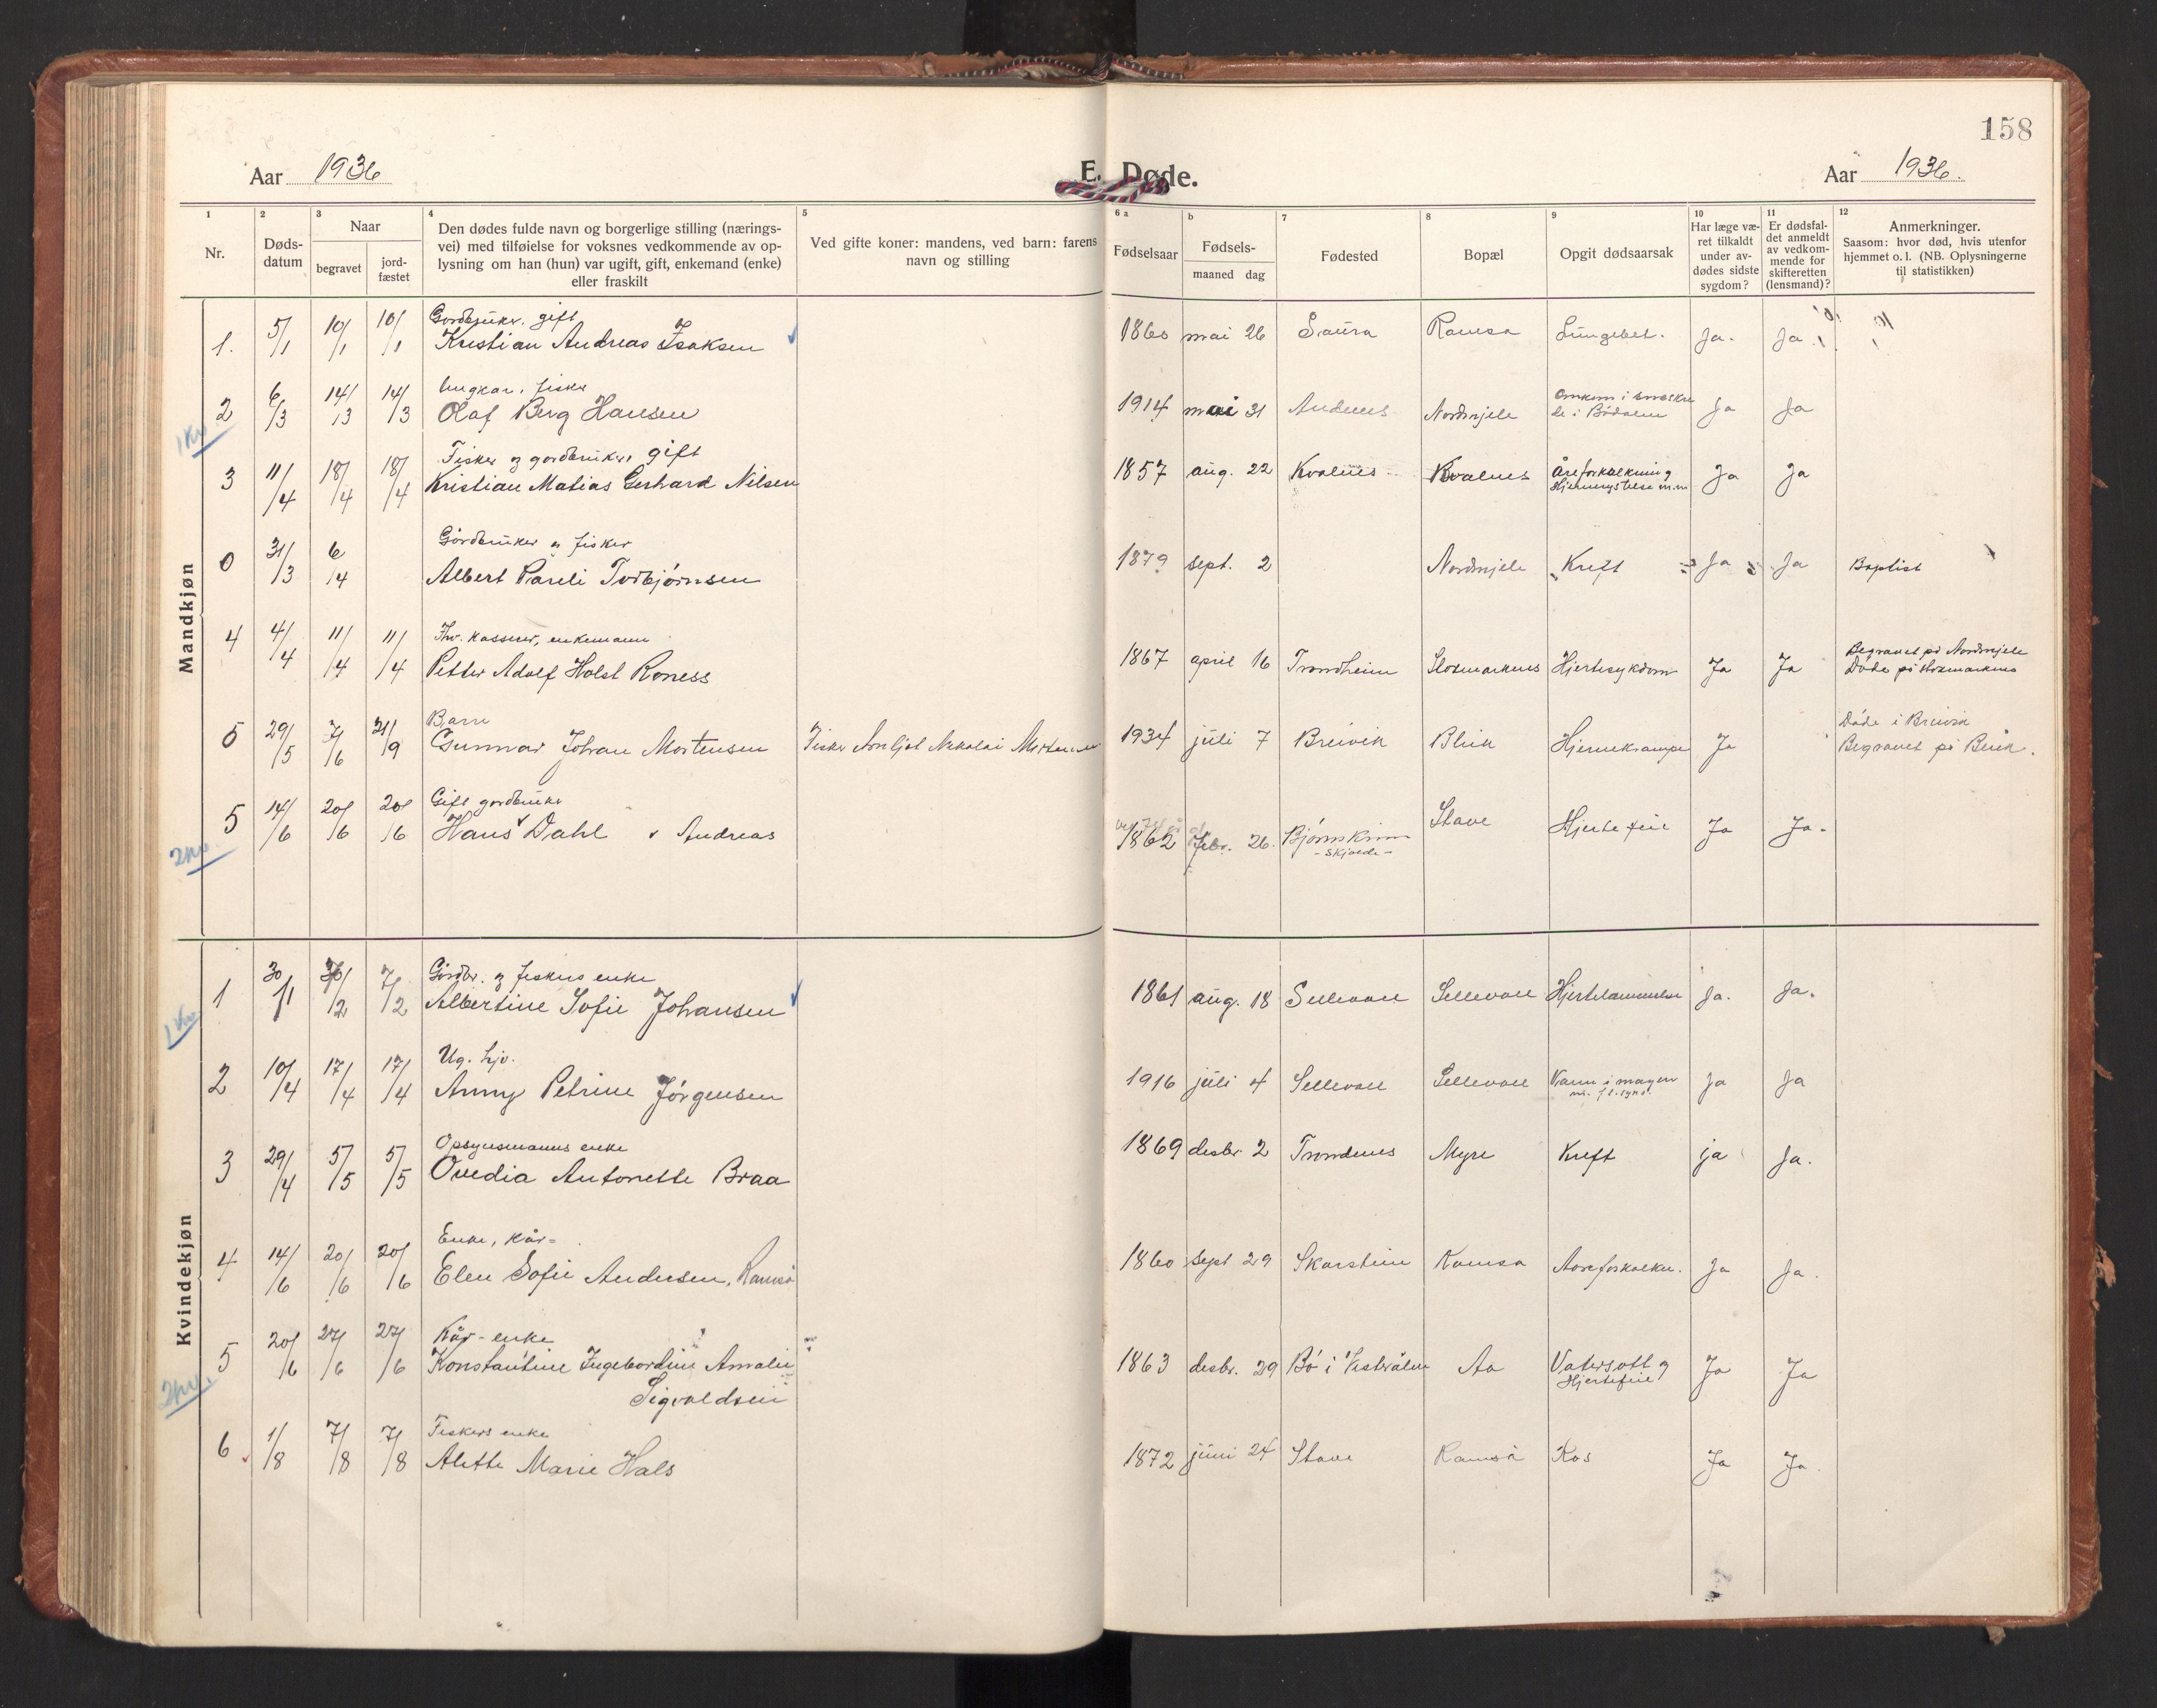 158
Aar 1936 E. Døde. Aar 1936.
1 2 3 4 5 6 a b 7 8 9 10 11 12
Nr.
Døds-
datum
Naar
begravet
jord-
fæstet
Den dødes fulde navn og borgerlige stilling (nærings-
vei) med tilføielse for voksnes vedkommende av op-
lysning om han (hun) var ugift, gift, enkemand (enke)
eller fraskilt
Ved gifte koner: mandens, ved barn: farens
navn og stilling
Fødselsaar
Fødsels-
maaned dag
Fødested
Bopæl
Opgit dødsaarsak
Har læge væ-
ret tilkaldt
under av-
dødes sidste
sygdom?
Er dødsfal-
det anmeldt
av vedkom-
mende for
skifteretten
(lensmand)?
Anmerkninger.
Saasom: hvor død, hvis utenfor
hjemmet o. l. (NB. Oplysningerne
til statistikken)
Mandkjøn
Gårdbruker. gift
1. 5/1 10/1 10/1 Kristian Andreas Isaksen 1860 mai 26 Saura Ramsa Lungebet. Ja. Ja
Ungkar, fisker
2 6/3 14/3 14/3 Olaf Berg Hansen 1914 mai 31 Andenes Nordmjele Omkom i sneskre
de i Bødalen Ja Ja
1 kv
Fisker og gårdbruker, gift
3 11/4 18/4 18/4 Kristian Matias Gerhard Nilsen 1857 aug. 22 Kvalnes Kvalnes Åreforkalkning
Hjernerystelse m.m Ja Ja
Gårdbruker og fisker
0 31/3 6/4 Albert Pareli Torbjørnsen 1879 sept. 2 Nordmjele Kreft Ja Ja Baptist
Fhv. kasserer, enkemann
4 4/4 11/4 11/4 Petter Adolf Holst Roness 1867 april 16 Trondheim Stokmarknes Hjertesykdom Ja Ja Begravet på Nordmjele
Døde på Stokmarknes
Barn
5 29/5 7/6 21/9 Gunnar Johan Mortensen Fisker Arnljot Nikolai Mortensen 1934 juli 7 Breivik Bleik Hjernekrampe Ja Døde i Breivik
Begravet på Bleik.
Gift gårdbruker
5 14/6 20/6 20/6 Hans Dahl Andreas 1862 febr. 26. Bjørnskinn
- Skjoede -
Stave Hjertefeil Ja Ja.
2 kv.
Kvindekjøn
Gårdbr. og fiskers enke
1 30/1 7/2 7/2 Albertine Sofie Johansen 1861 aug. 18 Sellevoll Sellevoll Hjertelammelse Ja. Ja.
1 kv
Ug. hjv.
2 10/4 17/4 17/4 Anny Petrine Jørgensen 1916 juli 4 Sellevoll Sellevoll Vann i magen Ja Ja
Opsynsmanns enke
3 29/4 5/5 5/5 Ovedia Antonette Braa 1869 desbr 2 Trondenes Myre Kreft ja Ja.
Enke, kår=
4 14/6 20/6 20/6 Elen Sofie Andersen, Ramså 1860 sept 29 Skarstein Ramsa Aareforkalkn. Ja Ja.
Kår-enke
5 20/6 27/6 27/6 Konstantine Ingebordine Amalie
Sigvaldsen
1863 desbr. 29 Bø i Vesterålen Aa Vatersott og
Hjertefeil Ja Ja
2 kv.
Fiskers enke
6 1/8 7/8 7/8 Alette Marie Hals 1872 juni 24 Stave Ramså Ja Ja.